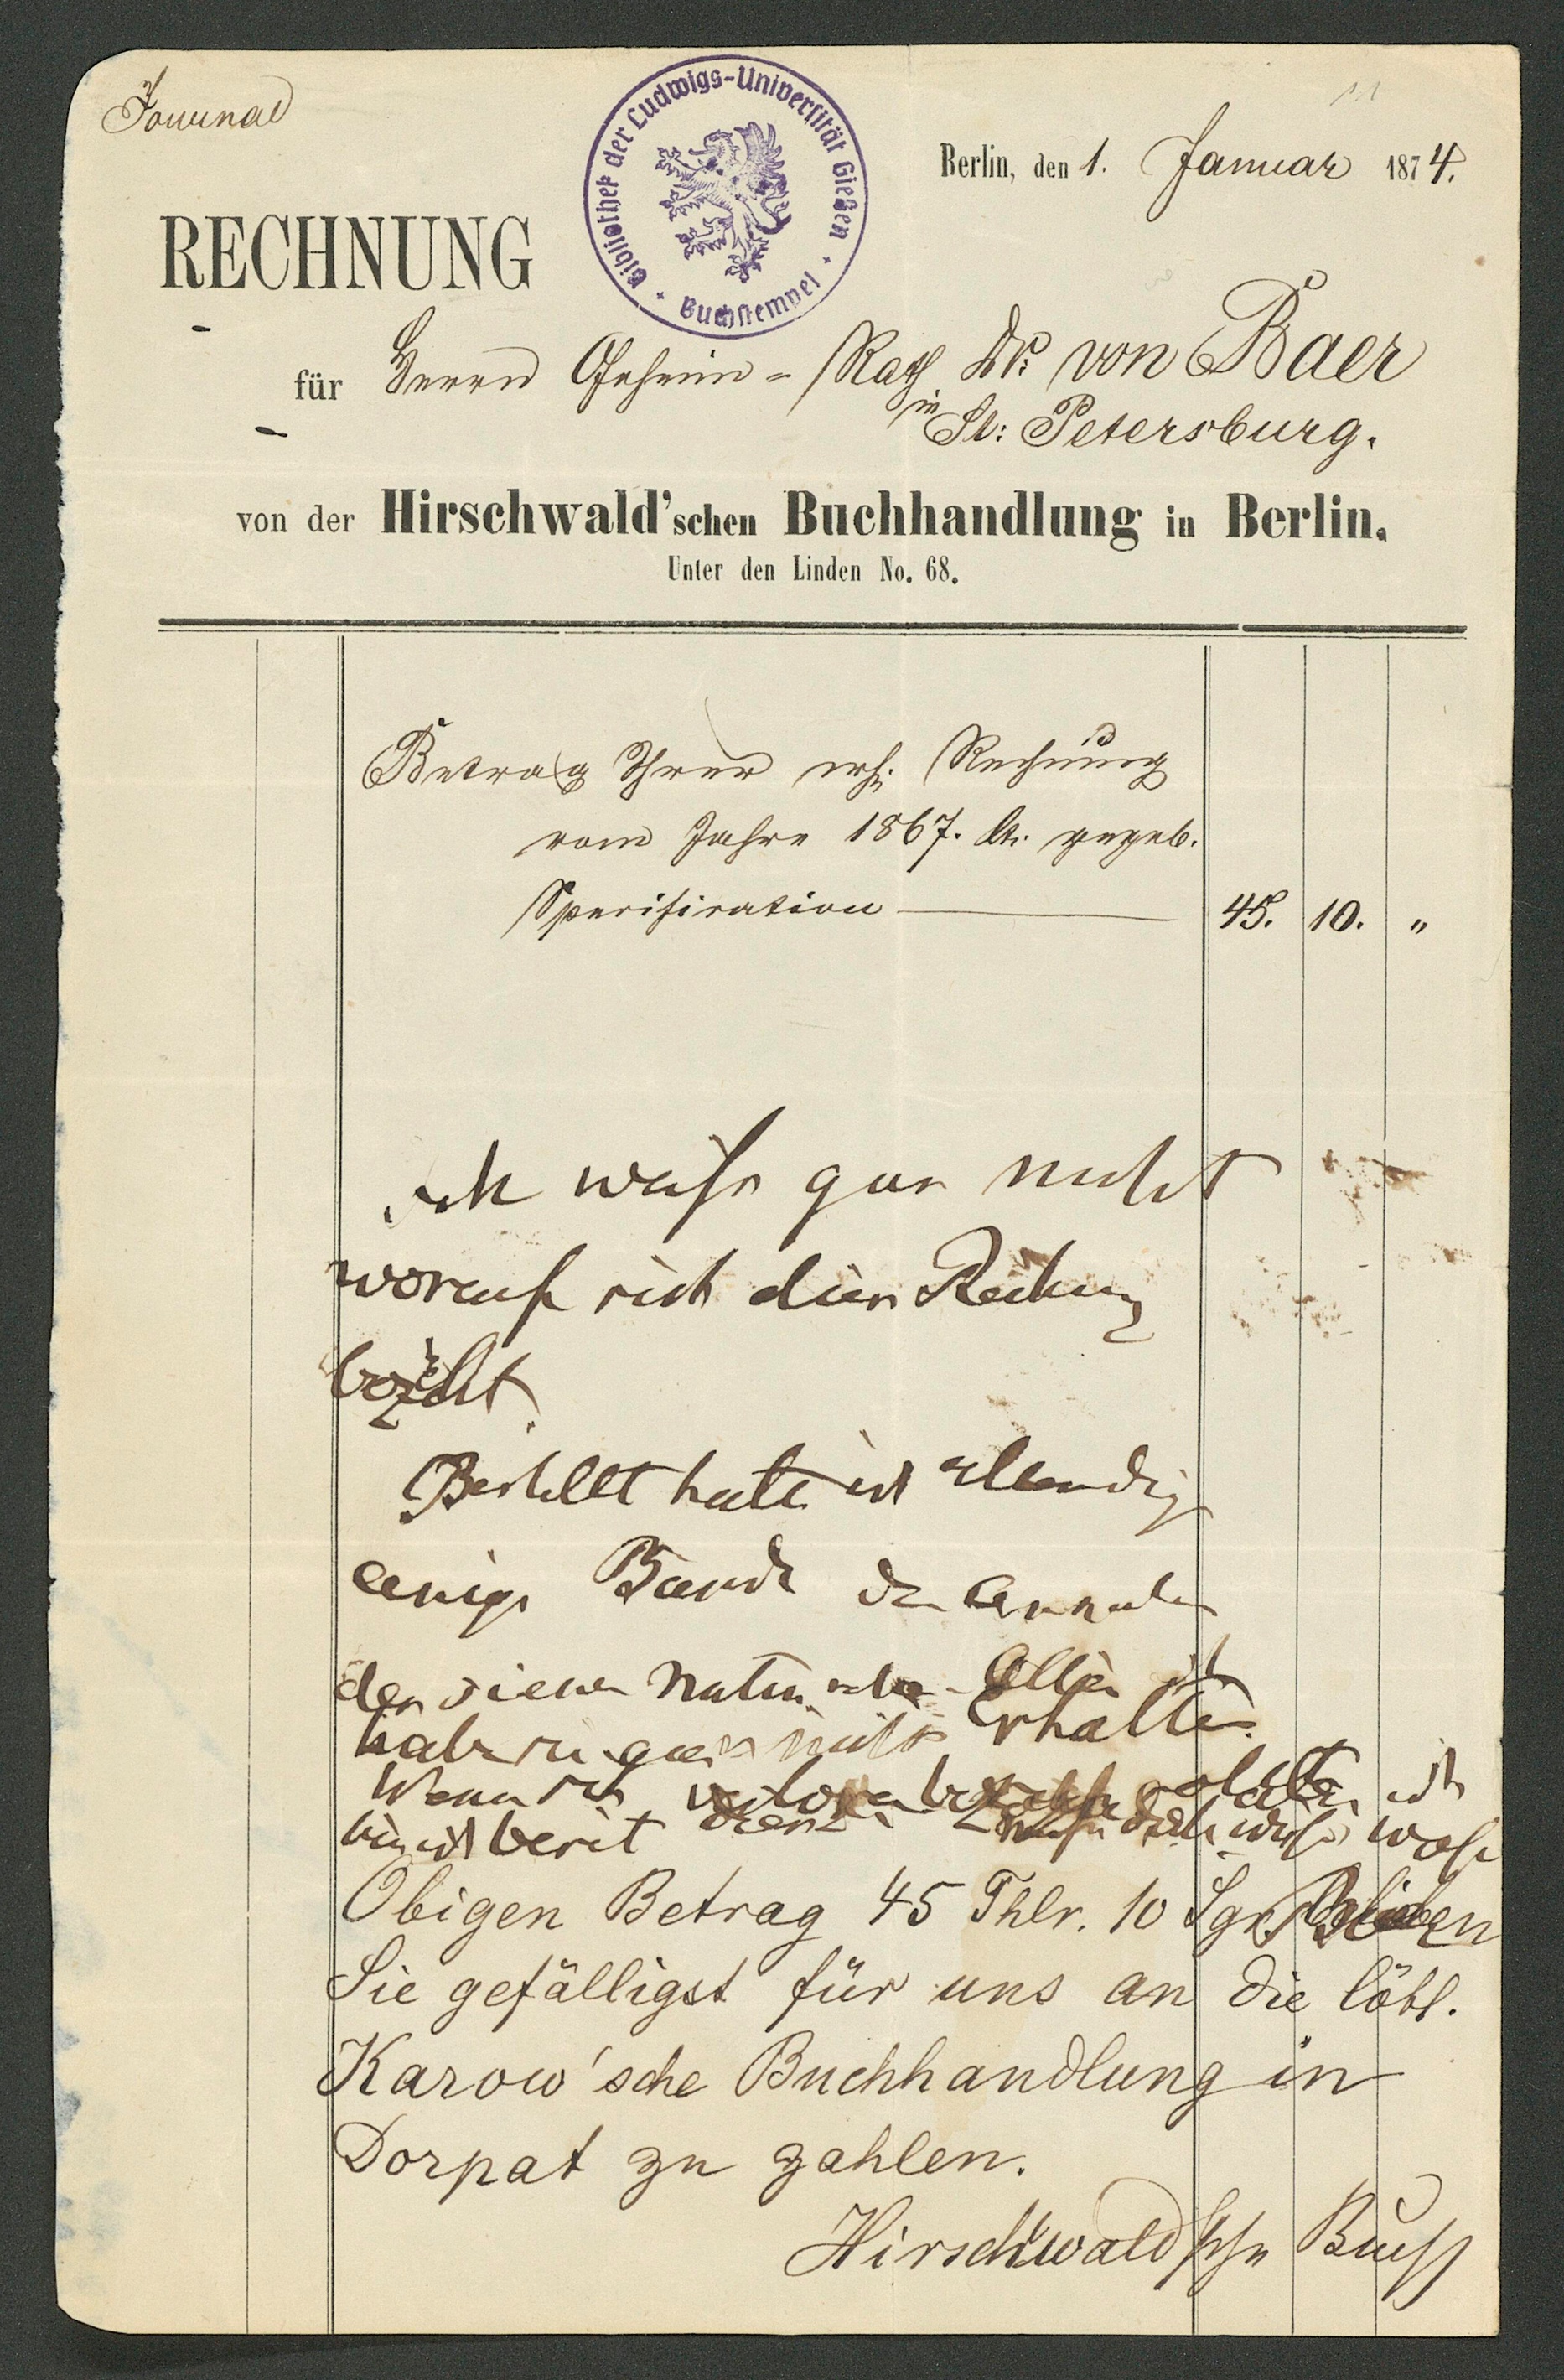 Journal
Bibliothek der Ludwigs-Universität Gießen
Buchstempel
Berlin, den 1. Januar 1874.
RECHNUNG
für Herrn Geheim-Rath Dr. von Baer
in St: Petersburg.
von der Hirschwald'schen Buchhandlung in Berlin.
Unter den Linden No. 68.
Betrag Ihrer Rechnung
vom Jahre 1867. lt. gegeb.
Specification 45. 10. "
ich weiß gar nicht
worauf sich diese Rechnung
bezieht.
Bestellt hatte ich
einige Bände der Annalen
der Wiener Allein ich
habe sie gar nicht erhalten.
Wenn ich ich
bin ich bereit
Obigen Betrag 45 Thlr. 10 Sgr. Belieben
Sie gefälligst für uns an die löbl.
Karow'sche Buchhandlung in
Dorpat zu zahlen.
Hirschwald'sche Buchh